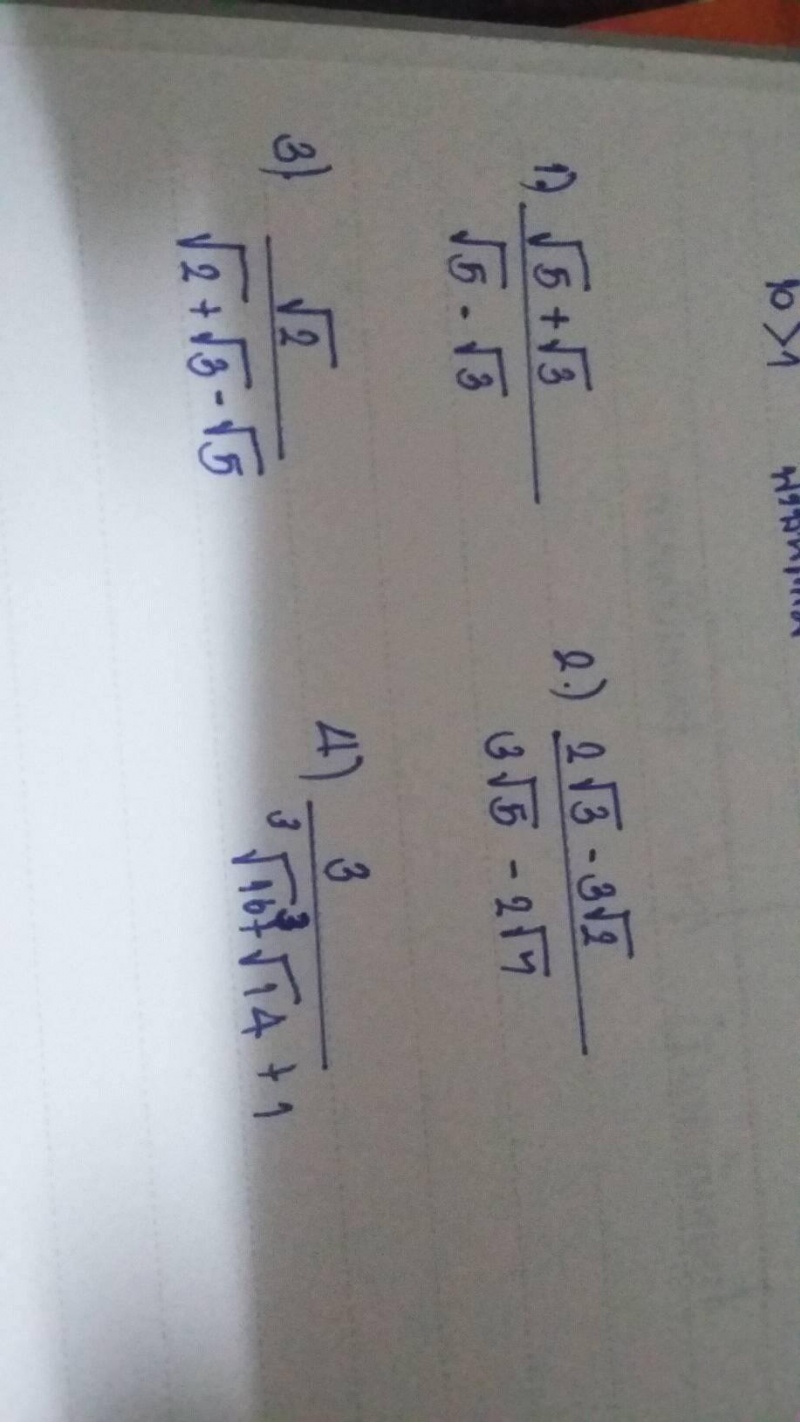 1) \frac{\sqrt{5}+\sqrt{3}}{\sqrt{5}-\sqrt{3}}
2.) \frac{2\sqrt{3}-3\sqrt{2}}{3\sqrt{5}-2\sqrt{7}}
3) \frac{\sqrt{2}}{\sqrt{2}+\sqrt{3}-\sqrt{5}}
4) \frac{3}{\sqrt[3]{16}+\sqrt[3]{14}+1}